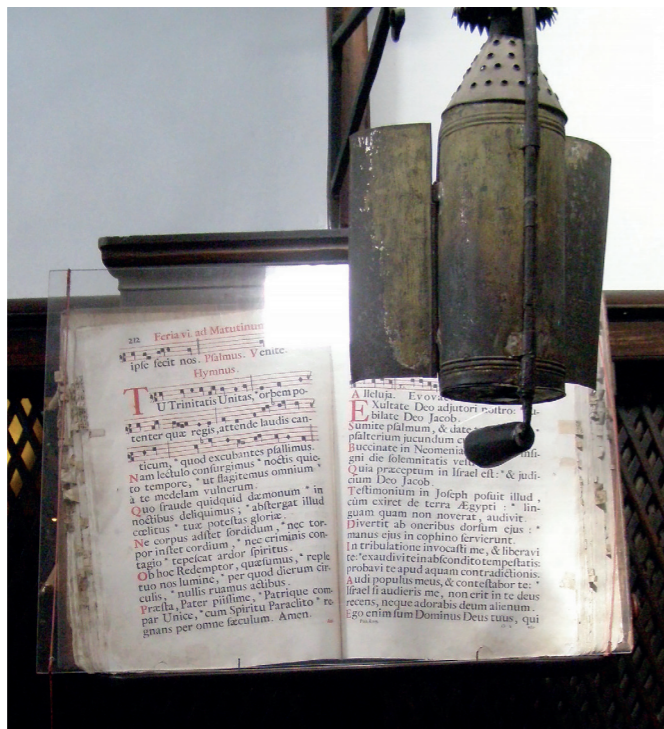 212 Feria vi. ad Matutinum
ipse fecit nos. Psalmus. Venite.
Hymnus.
TU Trinitatis Unitas, * orbem po-
tenter quæ regis, attende laudis can-
ticum, * quod excubantes psallimus.
Nam lectulo consurgimus * noctis quie-
to tempore, * ut flagitemus omnium *
à te medelam vulnerum.
Quo fraude quidquid dæmonum * in
noctibus deliquimus; * abstergat illud
cœlitus * tuæ potestas gloriæ.
Ne corpus adsit sordidum, * nec tor-
por instet cordium, * nec criminis con-
tagio * tepescat ardor spiritus.
Ob hoc Redemptor, quæsumus, * reple
tuo nos lumine, * per quod dierum cir-
culis, * nullis ruamus actibus.
Præsta, Pater piissime, * Patrique com-
par Unice, * cum Spiritu Paraclito * re-
gnans per omne sæculum. Amen.
Alleluja. Evovae
Exultate Deo adjutori nostro: * ju-
bilate Deo Jacob.
Sumite psalmum, & date
psalterium jucundum
Buccinate in Neomenia
gni die solemnitatis
Quia præceptum in Israel est: * & judi-
cium Deo Jacob.
Testimonium in Joseph posuit illud,
cùm exiret de terra Ægypti: * lin-
guam quam non noverat, audivit.
Divertit ab oneribus dorsum ejus: *
manus ejus in cophino servierunt.
In tribulatione invocasti me, & liberavi
te: * exaudivi te in abscondito tempestatis:
probavi te apud aquam contradictionis.
Audi populus meus, & contestabor te: *
Israel si audieris me, non erit in te deus
recens, neque adorabis deum alienum.
Ego enim sum Dominus Deus tuus, qui